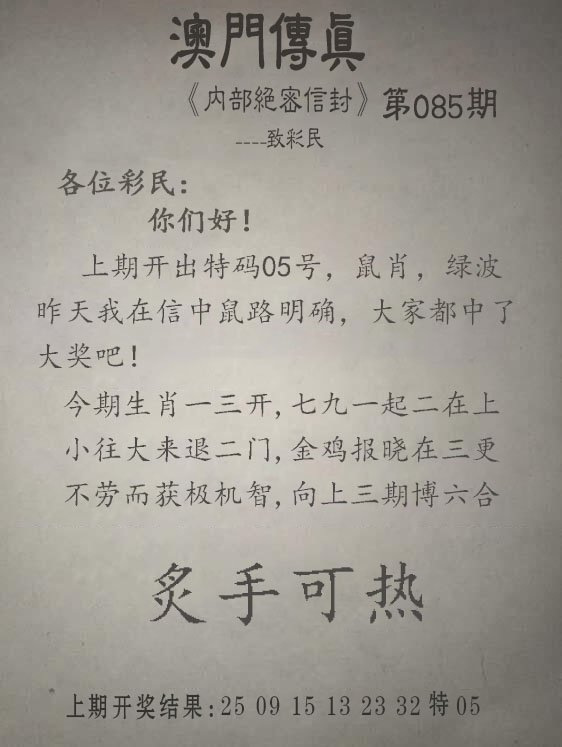 澳門傳真
《内部絕密信封》第085期
----致彩民
各位彩民:
你们好!
上期开出特码05号，鼠肖，绿波
昨天我在信中鼠路明确，大家都中了
大奖吧!
今期生肖一三开,七九一起二在上
小往大来退二门,金鸡报晓在三更
不劳而获极机智,向上三期博六合
炙手可热
上期开奖结果:25 09 15 13 23 32 特 05